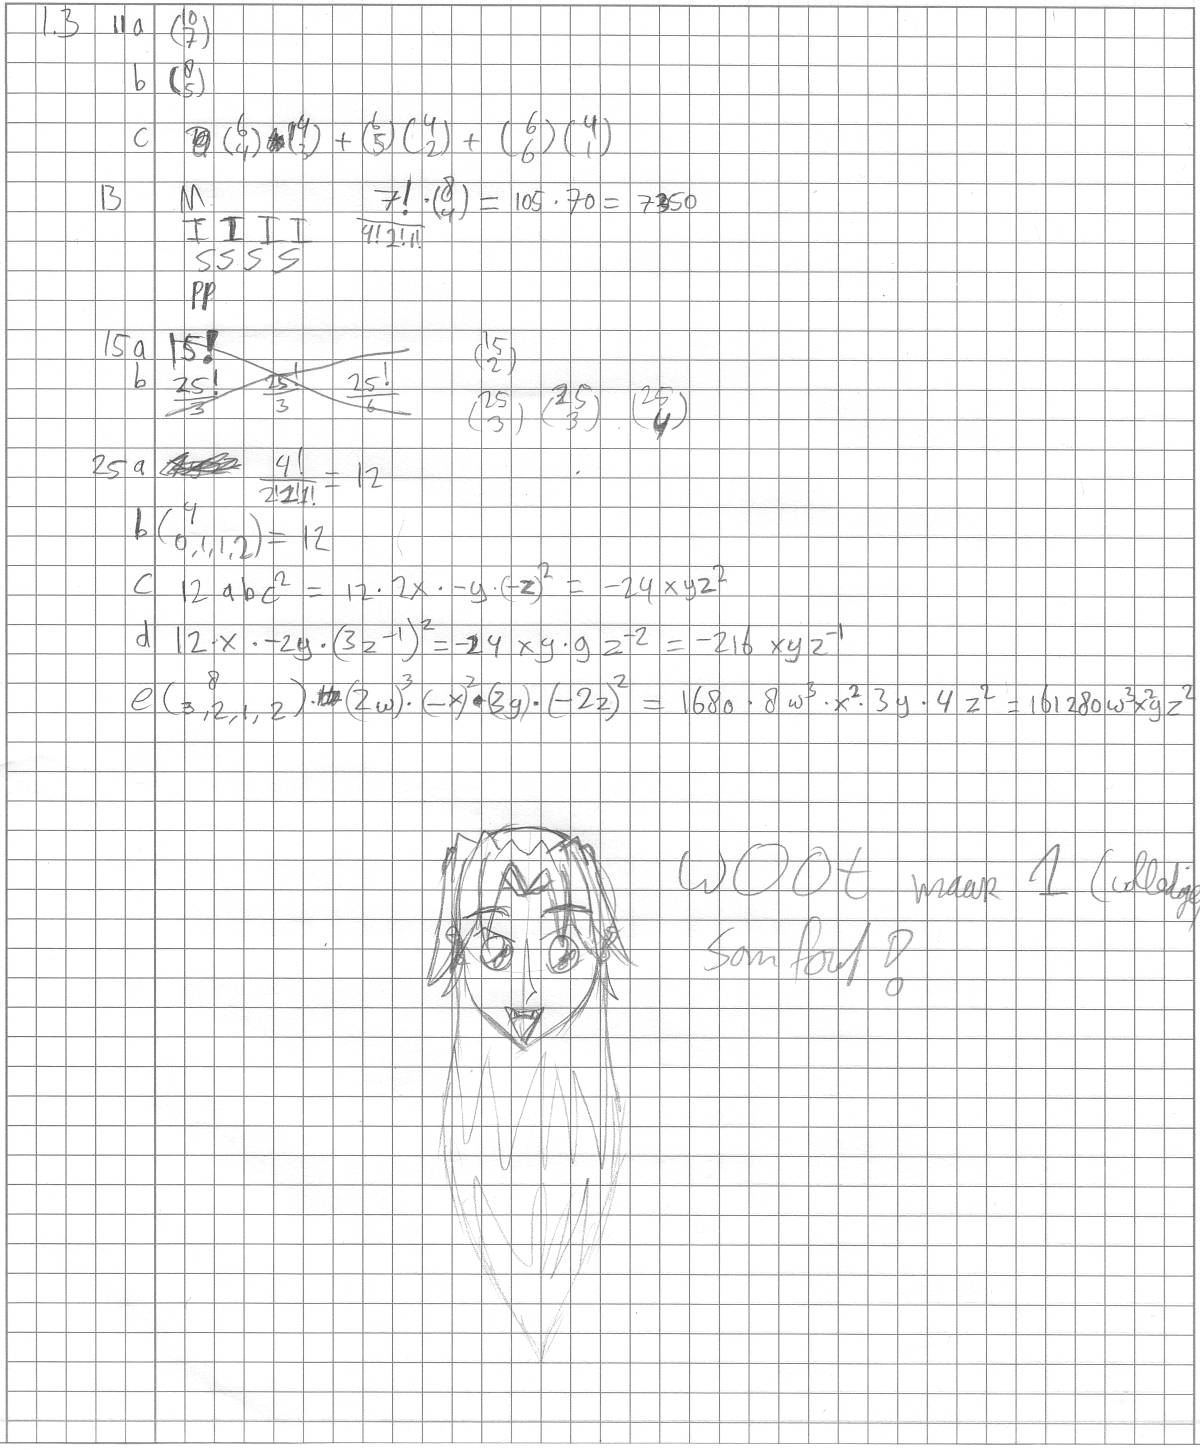 1.3 11a (10 7)
b (8 5)
c (6 4) (4 3) + (6 5) (4 2) + (6 6) (4 1)
13 M 7!/4!2!1! · (8 4) = 105 · 70 = 7350
I I I I
S S S S
PP
15a 15! (15 2)
b 25!/3 25!/3 25!/6 (25 3) (25 3) (25 4)
25a 4!/2!1!1! = 12
b (4 0,1,1,2) = 12
c 12 abc² = 12 · 2x · -y · (-z)² = -24xyz²
d 12 · x · -2y · (3z⁻¹)² = -24 xy · 9 z⁻² = -216 xyz⁻¹
e (8 3,2,1,2) · (2w)³ · (-x)² · (3y) · (-2z)² = 1680 · 8w³ · x² · 3y · 4z² = 161280w³x²yz²
WOOt maar 1
som fout?